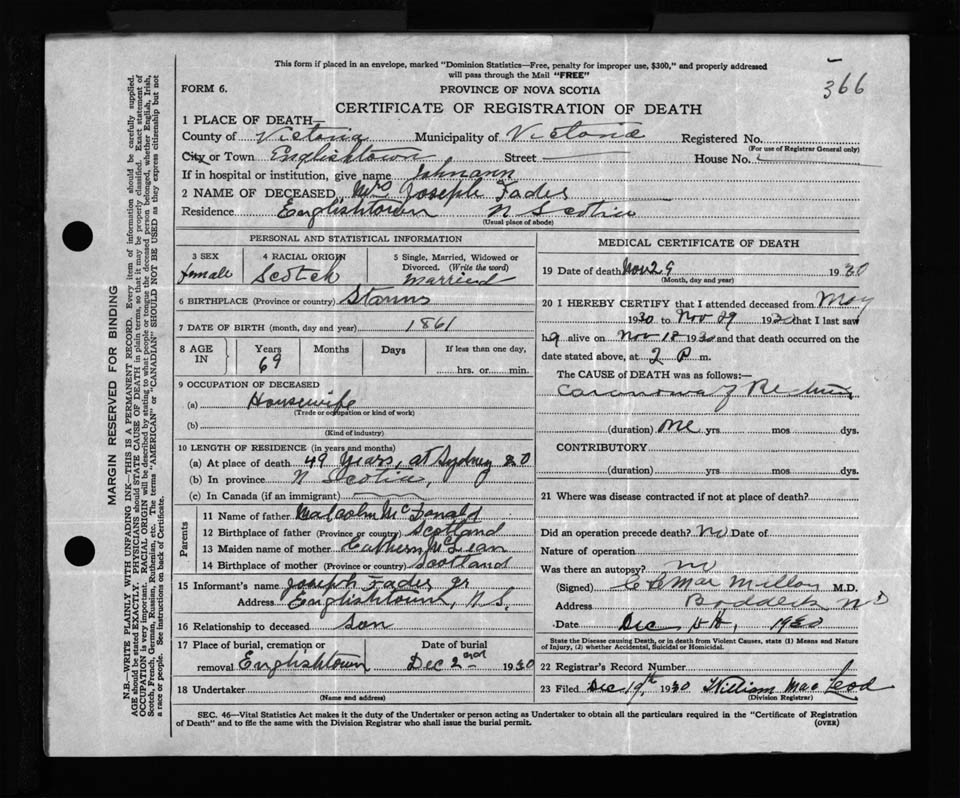 This form if placed in an envelope, marked "Dominion Statistics—Free, penalty for improper use, $300," and properly addressed
will pass through the Mail "FREE"
366
FORM 6.
PROVINCE OF NOVA SCOTIA
CERTIFICATE OF REGISTRATION OF DEATH
1 PLACE OF DEATH—
County of Victoria Municipality of Victoria Registered No.
(For use of Registrar General only)
City or Town Englishtown Street House No.
If in hospital or institution, give name Johnann
2 NAME OF DECEASED, Mrs Joseph Fader
Residence Englishtown N Scotia
(Usual place of abode)
PERSONAL AND STATISTICAL INFORMATION
3 SEX
female
4 RACIAL ORIGIN
Scotch
5 Single, Married, Widowed or
Divorced. (Write the word)
married
6 BIRTHPLACE (Province or country)
7 DATE OF BIRTH (month, day and year) 1861
8 AGE IN
Years Months Days If less than one day,
69 hrs. or min.
9 OCCUPATION OF DECEASED
(a) Housewife
(Trade or occupation or kind of work)
(b)
(Kind of industry)
10 LENGTH OF RESIDENCE (in years and months)
(a) At place of death 49 Years, at Sydney 20
(b) In province N Scotia,
(c) In Canada (if an immigrant)
Parents
11 Name of father Malcolm McDonald
12 Birthplace of father (Province or country) Scotland
13 Maiden name of mother Cathern McLean
14 Birthplace of mother (Province or country) Scotland
15 Informant's name Joseph Fader jr
Address Englishtown, N.S.
16 Relationship to deceased son
17 Place of burial, cremation or
removal Englishtown
Date of burial
Dec 2nd 1930
18 Undertaker
(Name and address)
MEDICAL CERTIFICATE OF DEATH
19 Date of death Nov 29 1930
(Month, day and year)
20 I HEREBY CERTIFY that I attended deceased from May
1930 to Nov 29 1930 that I last saw
her alive on Nov 18 1930 and that death occurred on the
date stated above, at 2 P m.
The CAUSE OF DEATH was as follows:—
Carcinoma of Rectum
(duration) one yrs mos dys.
CONTRIBUTORY
(duration) yrs mos dys.
21 Where was disease contracted if not at place of death?
Did an operation precede death? No Date of
Nature of operation
Was there an autopsy? no
(Signed) MacMillan M.D.
Address Baddeck NS
Date Dec 1930
State the Disease causing Death, or in death from Violent Causes, state (1) Means and Nature
of Injury, (2) whether Accidental, Suicidal or Homicidal.
22 Registrar's Record Number
23 Filed Dec 19th 1930 William MacLeod
(Division Registrar)
SEC. 46—Vital Statistics Act makes it the duty of the Undertaker or person acting as Undertaker to obtain all the particulars required in the "Certificate of Registration
of Death" and to file the same with the Division Registrar who shall issue the burial permit.
(OVER)
MARGIN RESERVED FOR BINDING
N.B.—WRITE PLAINLY WITH UNFADING INK—THIS IS A PERMANENT RECORD. Every item of information should be carefully supplied.
AGE should be stated EXACTLY. PHYSICIANS should STATE CAUSE OF DEATH in plain terms, so that it may be properly classified. Exact statement of
OCCUPATION is very important. RACIAL ORIGIN will be described by stating to what people or tongue the deceased person belonged, whether English, Irish,
Scotch, French, German, Russian, Ruthenian, etc. The terms "AMERICAN" or "CANADIAN" SHOULD NOT BE USED as they express citizenship but not
a race or people. See instructions on back of Certificate.